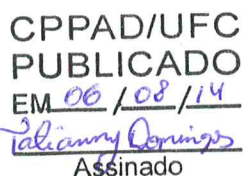 CPPAD/UFC
PUBLICADO
EM 06 / 08 / 14
Talianny Domingos
Assinado